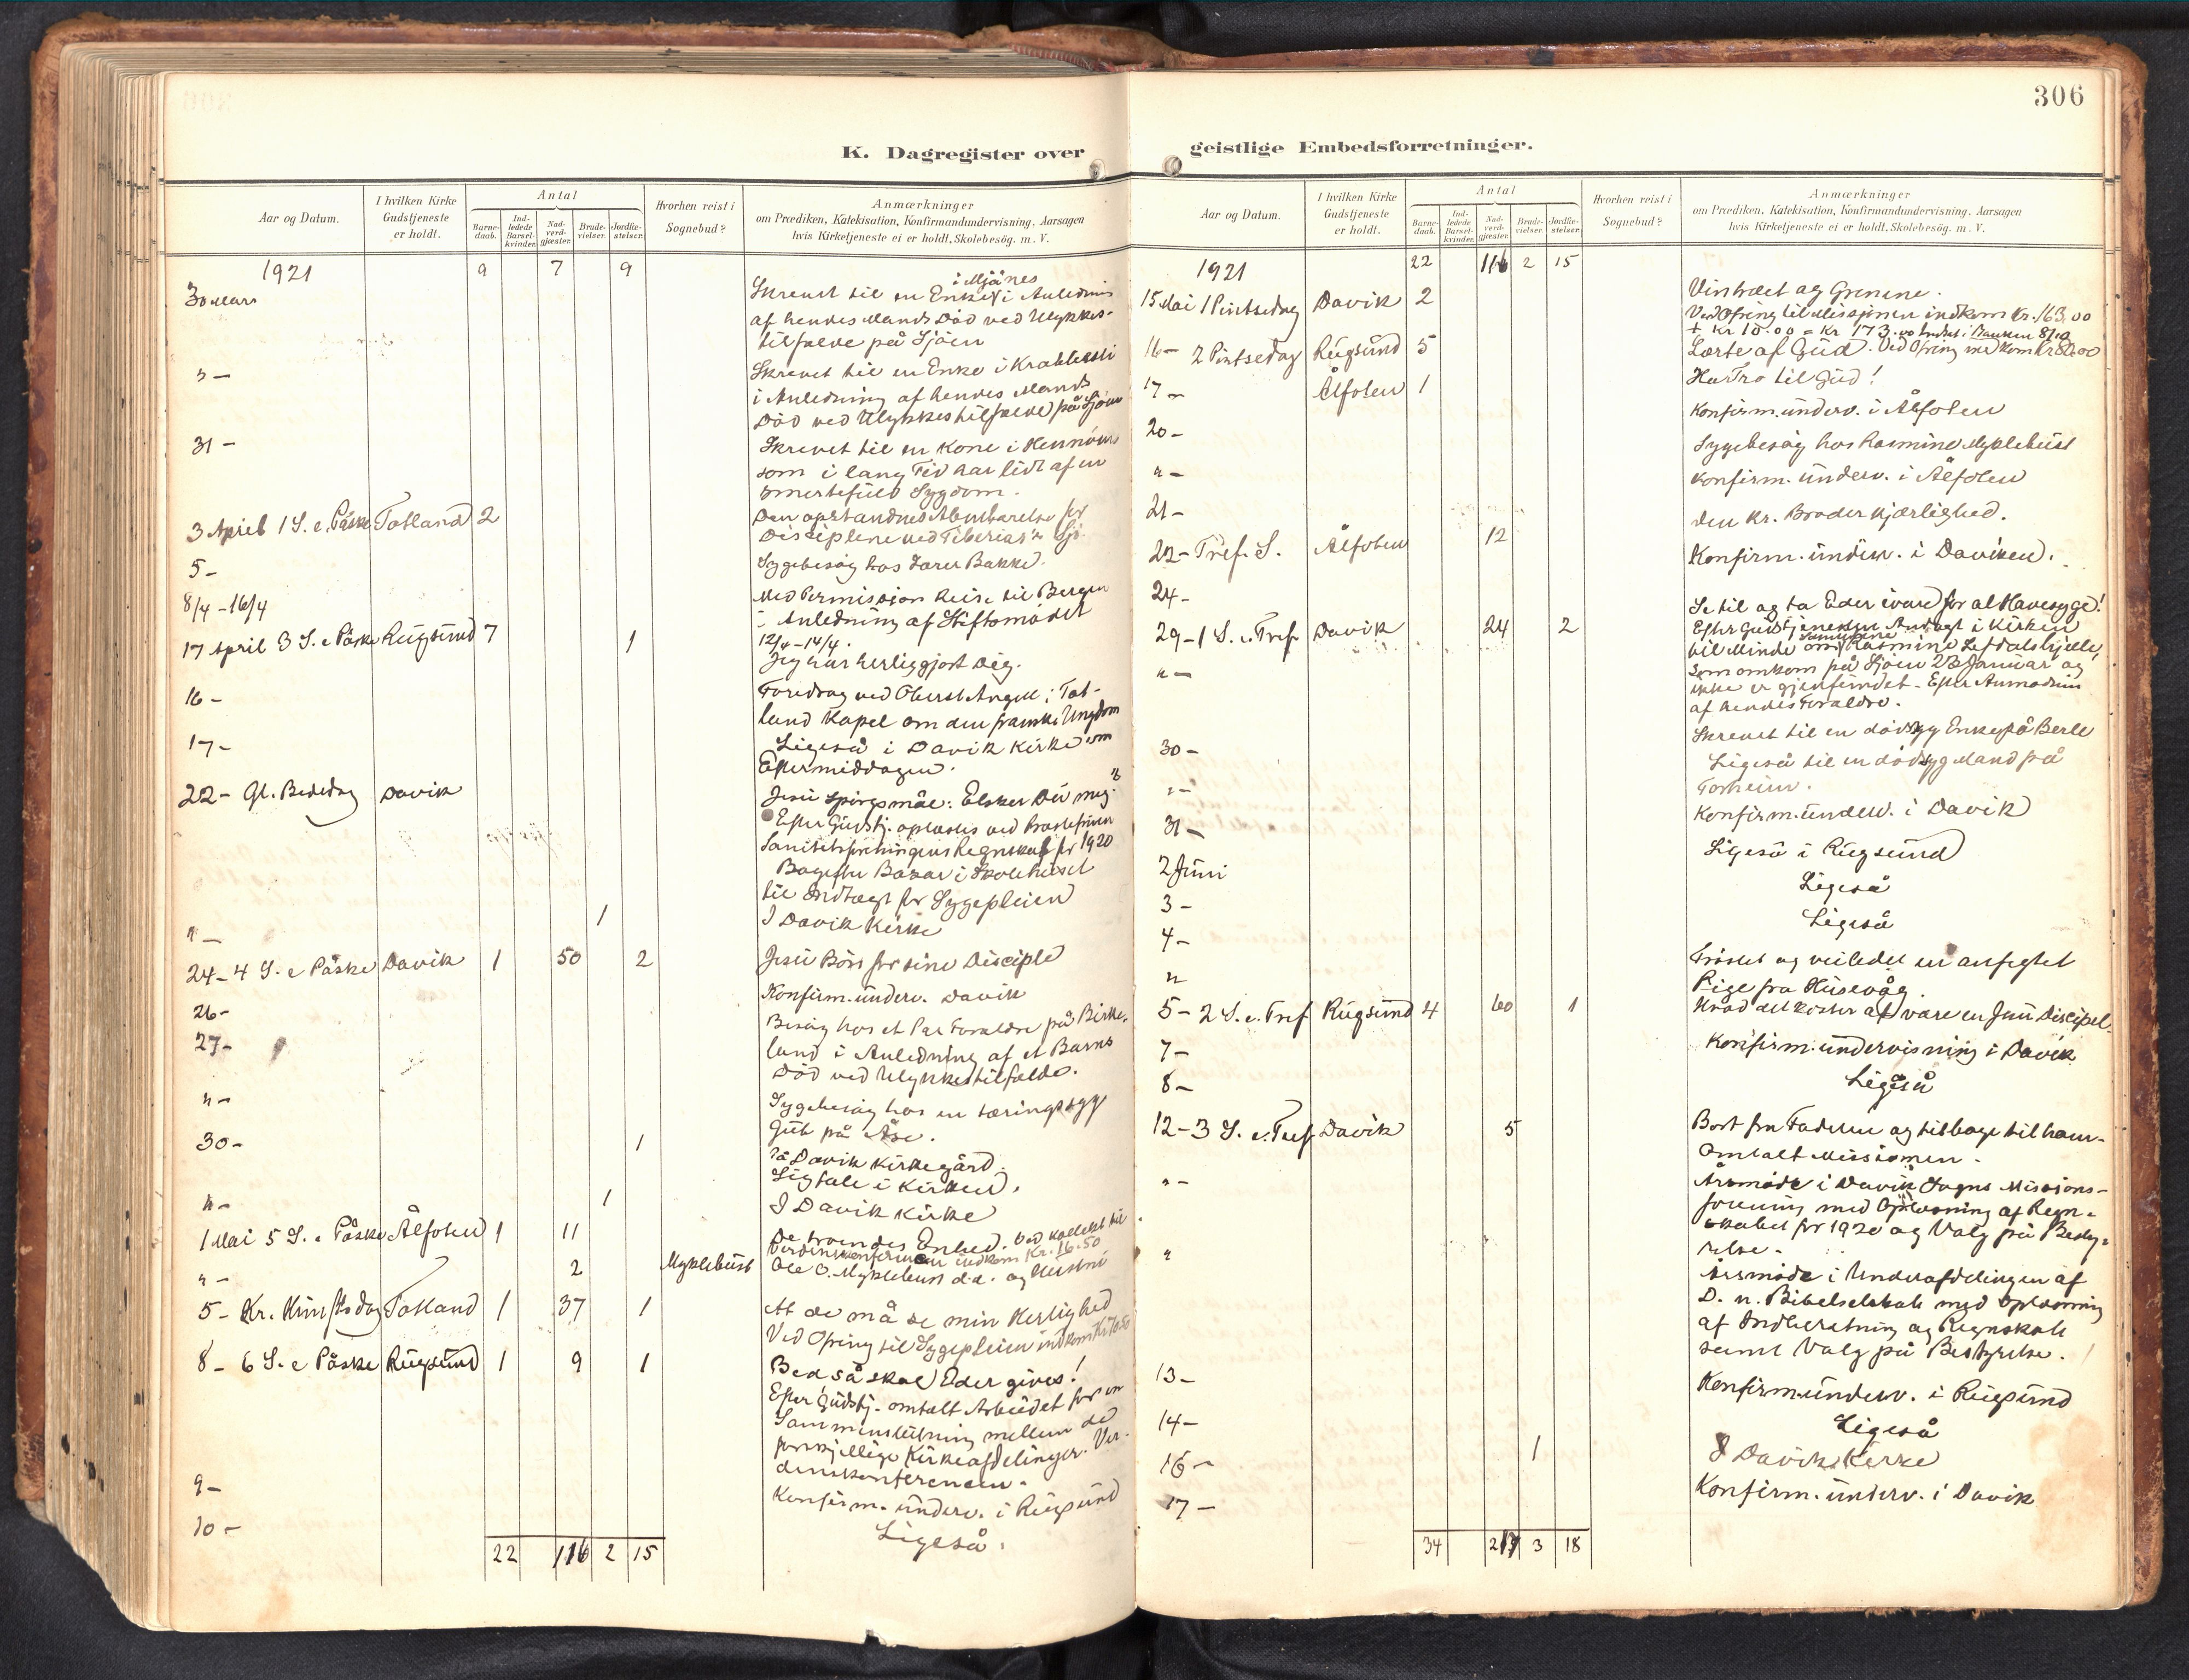 306
K. Dagregister over geistlige Embedsforretninger.
Aar og Datum.
I hvilken Kirke Gudstjeneste er holdt.
Antal
Barnedaab.
Indledede Barselkvinder.
Nadverdgjæster.
Brudevielser.
Jordfæstelser.
Hvorhen reist i Sognebud?
Anmærkninger
om Prædiken, Katekisation, Konfirmandundervisning, Aarsagen
hvis Kirketjeneste ei er holdt, Skolebesög. m. V.
1921 9 7 9
30 Mars Skrevet til en Enke i Mjånes i Anledning
af hendes Mands Död ved Ulykkes-
tilfælde på Sjöen
"- Skrevet til en Enke i
i Anledning af hendes Mands
Död ved Ulykkestilfælde på Sjöen
31- Skrevet til en Kone i
som i lang Tid har lidt af en
smertefuld Sygdom.
3 April 1 S. e. Påske Totland 2 Den opstandnes Åbenbarelse for
Disciplene ved Tiberias's Sjö.
5- Sygebesög hos Bakke.
8/4-16/4 Med Permission Reise til Bergen
i Anledning af Stiftsmödet
12/4-14/4.
17 April 3 S. e Påske Rugsund 7 1 Jeg har herliggjort Dig.
16- Foredrag ved Oberst Angell i Tot-
land Kapel om den franske Ungdom
17- Ligeså i Davik Kirke om
Eftermiddagen.
22- Gl. Bededag Davik Jesu Spörgsmål: Elsker Du mig?
Efter Gudstj. oplæstes ved Præstefruen
Sanitetsforeningens Regnskab for 1920
Bagefter Bazar i Skolehuset
til Indtægt for Sygepleien
"- 1 I Davik Kirke
24- 4 S. e Påske Davik 1 50 2 Jesu Bön for sine Disciple
26- Konfirm. underv. Davik
27- Besög hos et Par Forældre på Birke-
land i Anledning af et Barns
Död ved Ulykkestilfælde.
"- Sygebesög hos en tæringssyg
Gut på Åse.
30- 1 På Davik Kirkegård.
Ligtale i Kirken.
"- 1 I Davik Kirke
1 Mai 5 S. e Påske Ålfoten 1 11 De troendes Enhed. Ved Kollekt til
Verdenskonferencen indkom Kr. 16.50
"- 2 Myklebust Ole O. Myklebust d.æ. og Hustru
5- Kr. Himf.dag Totland 1 37 1 At de må se min Herlighed
Ved Ofring til Sygepleien indkom Kr
8- 6 S. e Påske Rugsund 1 9 1 Bed så skal Eder gives!
Efter Gudstj. omtalt Arbeidet for en
Sammenslutning mellem de
forskjellige Kirkeafdelinger. Ver-
denskonferencen.
9- Konfirm. underv. i Rugsund
10- Ligeså.
22 116 2 15
Aar og Datum.
I hvilken Kirke Gudstjeneste er holdt.
Antal
Barnedaab.
Indledede Barselkvinder.
Nadverdgjæster.
Brudevielser.
Jordfæstelser.
Hvorhen reist i Sognebud?
Anmærkninger
om Prædiken, Katekisation, Konfirmandundervisning, Aarsagen
hvis Kirketjeneste ei er holdt, Skolebesög. m. V.
1921 22 116 2 15
15 Mai 1 Pintsedag Davik 2 Vintræet og Grenene.
Ved Ofring til Missionen indkom Kr. 163,00
+ Kr 10.00 = Kr 173.00
16- 2 Pintsedag Rugsund 5 Lærte af Gud. Ved Ofring indkom Kr 82.00
17- Ålfoten 1 Hav Tro til Gud!
20- Konfirm. underv. i Ålfoten
"- Sygebesög hos Rasmine Myklebust
21- Konfirm. underv. i Ålfoten
22- Tref. S. Ålfoten 12 Den kr. Broderkjærlighed.
24- Konfirm. underv. i Daviken.
29- 1 S. e. Tref Davik 24 2 Se til og ta Eder ivare for al Havesyge!
"- Efter Gudstjenesten Andagt i Kirken
til Minde om Rasmine Lefdalskjelle,
som omkom på Sjöen 23 Januar og
ikke er gjenfundet. Efter Anmodning
af hendes Forældre.
30- Skrevet til en dödssyg Enke på Berle
"- Ligeså til en dödssyg Mand på
Torheim.
31- Konfirm. underv. i Davik
2 Juni Ligeså i Rugsund
3- Ligeså
4- Ligeså
" Tröstet og veiledet en anfegtet
Pige fra Husevåg.
5- 2 S. e. Tref Rugsund 4 60 1 Hvad det koster at være en Jesu Discipel.
7- Konfirm. undervisning i Davik
8- Ligeså
12- 3 S. e. Tref. Davik 5 Bort fra Faderen og tilbage til ham.
Omtalt Missionen.
"- Årsmöde i Davik Sogns Missions-
forening med Oplæsning af Regn-
skabet for 1920 og Valg på Besty-
relse.
" Årsmöde i Underafdelingen af
D. n. Bibelselskab med Oplæsning
af Indberetning og Regnskab
samt Valg på Bestyrelse.
13- Konfirm. underv. i Rugsund
14- Ligeså
16- 1 I Davik Kirke
17- Konfirm. underv. i Davik
34 217 3 18